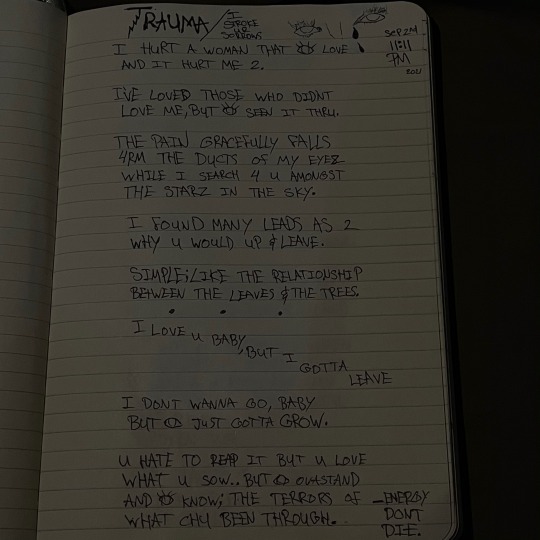 TRAUMA / I SMOKE UR SORROWS
SEP 2M
11:11
PM
2021
I HURT A WOMAN THAT LOVE
AND IT HURT ME 2.
I'VE LOVED THOSE WHO DIDNT
LOVE ME, BUT SEEN IT THRU.
THE PAIN GRACEFULLY FALLS
4RM THE DUCTS OF MY EYEZ
WHILE I SEARCH 4 U AMONGST
THE STARZ IN THE SKY.
I FOUND MANY LEADS AS 2
WHY U WOULD UP & LEAVE.
SIMPLE; LIKE THE RELATIONSHIP
BETWEEN THE LEAVES & THE TREES.
I LOVE U BABY, BUT I GOTTA LEAVE
I DONT WANNA GO, BABY
BUT JUST GOTTA GROW.
U HATE TO REAP IT BUT U LOVE
WHAT U SOW.. BUT OVASTAND
AND KNOW; THE TERRORS OF
WHAT CHU BEEN THROUGH.
_ENERGY
DONT
DIE.